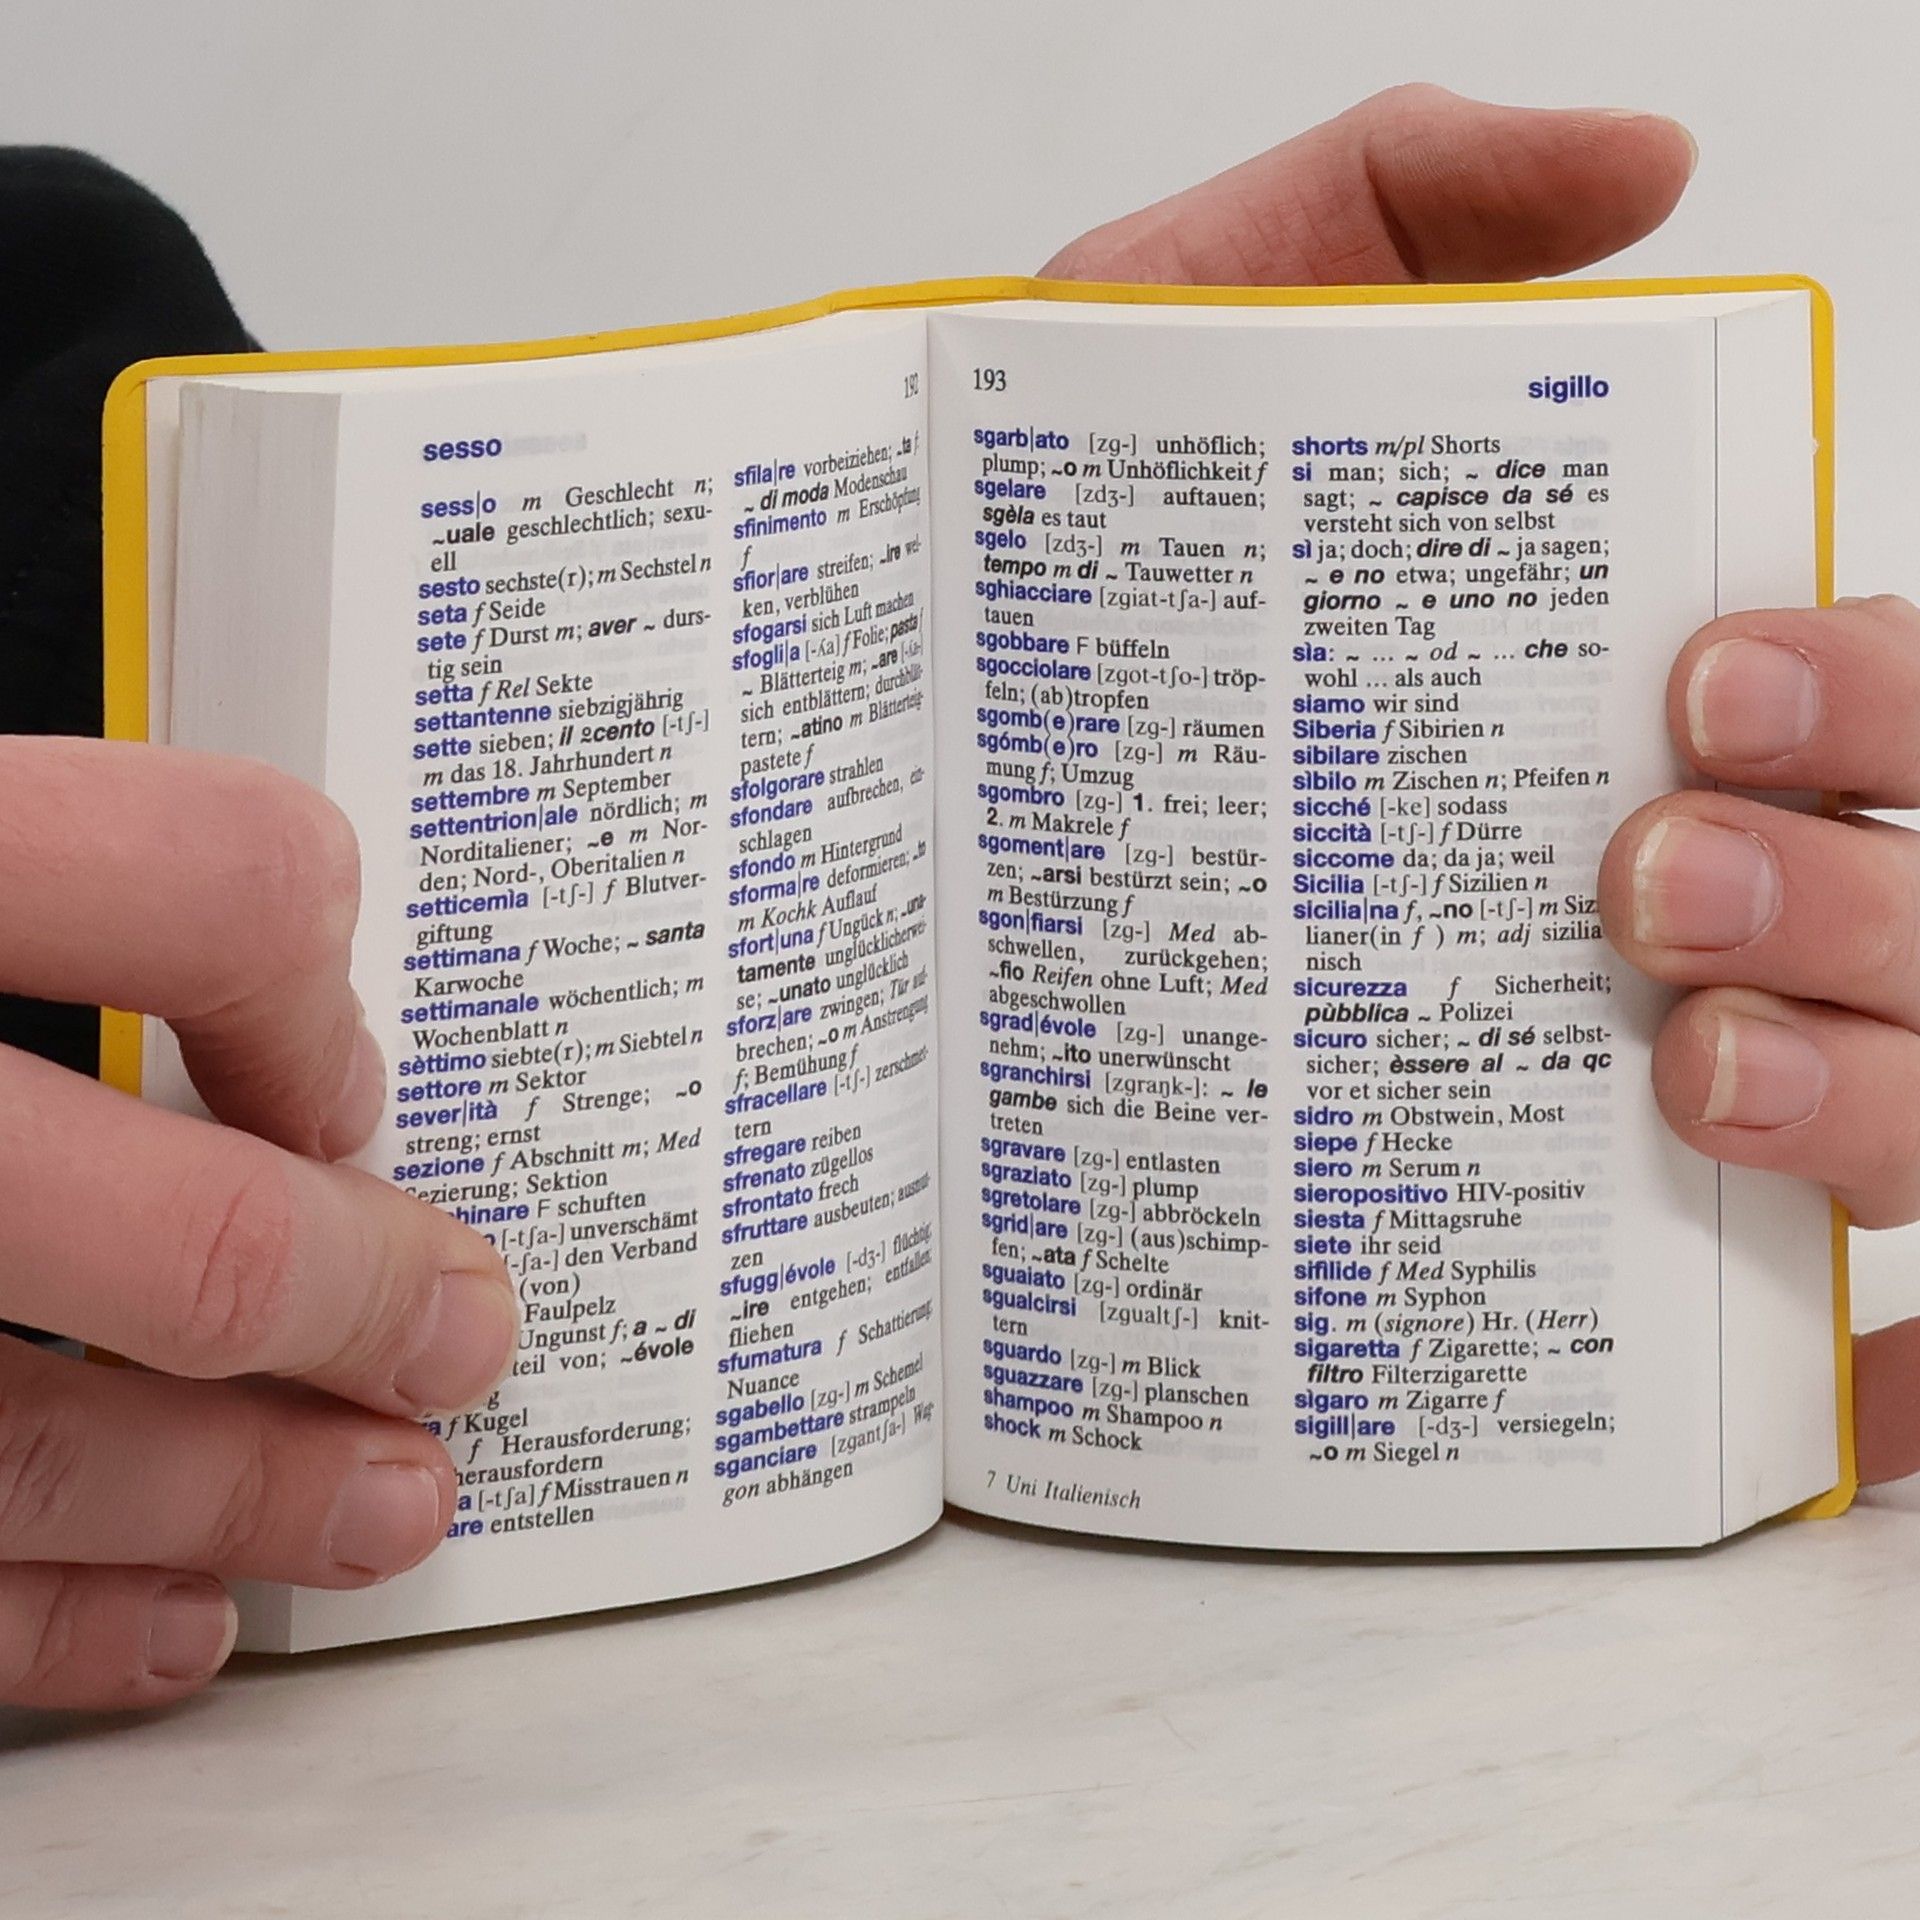 192
sesso
sess|o m Geschlecht n;
~uale geschlechtlich; sexu-
ell
sesto sechste(r); m Sechstel n
seta f Seide
sete f Durst m; aver ~ durs-
tig sein
setta f Rel Sekte
settantenne siebzigjährig
sette sieben; il ²cento [-tʃ-]
m das 18. Jahrhundert n
settembre m September
settentrion|ale nördlich; m
Norditaliener; ~e m Nor-
den; Nord-, Oberitalien n
setticemìa [-tʃ-] f Blutver-
giftung
settimana f Woche; ~ santa
Karwoche
settimanale wöchentlich; m
Wochenblatt n
sèttimo siebte(r); m Siebtel n
settore m Sektor
sever|ità f Strenge; ~o
streng; ernst
sezione f Abschnitt m; Med
Sezierung; Sektion
hinare F schuften
[-tʃa-] unverschämt
[-ʃa-] den Verband
(von)
Faulpelz
Ungunst f; a ~ di
teil von; ~évole
g
f Kugel
f Herausforderung;
herausfordern
a [-tʃa] f Misstrauen n
are entstellen
sfila|re vorbeiziehen; ~ta f
~ di moda Modenschau
sfinimento m Erschöpfung
f
sfior|are streifen; ~ire wel-
ken, verblühen
sfogarsi sich Luft machen
sfogli|a [-ʎa] f Folie; pasta f
~ Blätterteig m; ~are [-ʎa-]
sich entblättern; durchblät-
tern; ~atino m Blätterteig-
pastete f
sfolgorare strahlen
sfondare aufbrechen, ein-
schlagen
sfondo m Hintergrund
sforma|re deformieren; ~to
m Kochk Auflauf
sfort|una f Ungück n; ~una-
tamente unglücklicherwei-
se; ~unato unglücklich
sforz|are zwingen; Tür auf-
brechen; ~o m Anstrengung
f; Bemühung f
sfracellare [-tʃ-] zerschmet-
tern
sfregare reiben
sfrenato zügellos
sfrontato frech
sfruttare ausbeuten; ausnut-
zen
sfugg|évole [-dʒ-] flüchtig;
~ire entgehen; entfallen;
fliehen
sfumatura f Schattierung;
Nuance
sgabello [zg-] m Schemel
sgambettare strampeln
sganciare [zgantʃa-] Wag-
gon abhängen
193
sigillo
sgarb|ato [zg-] unhöflich;
plump; ~o m Unhöflichkeit f
sgelare [zdʒ-] auftauen;
sgèla es taut
sgelo [zdʒ-] m Tauen n;
tempo m di ~ Tauwetter n
sghiacciare [zgiat-tʃa-] auf-
tauen
sgobbare F büffeln
sgocciolare [zgot-tʃo-] tröp-
feln; (ab)tropfen
sgomb(e)rare [zg-] räumen
sgómb(e)ro [zg-] m Räu-
mung f; Umzug
sgombro [zg-] 1. frei; leer;
2. m Makrele f
sgoment|are [zg-] bestür-
zen; ~arsi bestürzt sein; ~o
m Bestürzung f
sgon|fiarsi [zg-] Med ab-
schwellen, zurückgehen;
~fio Reifen ohne Luft; Med
abgeschwollen
sgrad|évole [zg-] unange-
nehm; ~ito unerwünscht
sgranchirsi [zgraŋk-]: ~ le
gambe sich die Beine ver-
treten
sgravare [zg-] entlasten
sgraziato [zg-] plump
sgretolare [zg-] abbröckeln
sgrid|are [zg-] (aus)schimp-
fen; ~ata f Schelte
sguaiato [zg-] ordinär
sgualcirsi [zgualtʃ-] knit-
tern
sguardo [zg-] m Blick
sguazzare [zg-] planschen
shampoo m Shampoo n
shock m Schock
shorts m/pl Shorts
si man; sich; ~ dice man
sagt; ~ capisce da sé es
versteht sich von selbst
sì ja; doch; dire di ~ ja sagen;
~ e no etwa; ungefähr; un
giorno ~ e uno no jeden
zweiten Tag
sìa: ~ ... ~ od ~ ... che so-
wohl ... als auch
siamo wir sind
Siberia f Sibirien n
sibilare zischen
sìbilo m Zischen n; Pfeifen n
sicché [-ke] sodass
siccità [-tʃ-] f Dürre
siccome da; da ja; weil
Sicilia [-tʃ-] f Sizilien n
sicilia|na f, ~no [-tʃ-] m Siz
lianer(in f ) m; adj sizilia
nisch
sicurezza f Sicherheit;
pùbblica ~ Polizei
sicuro sicher; ~ di sé selbst-
sicher; èssere al ~ da qc
vor et sicher sein
sidro m Obstwein, Most
siepe f Hecke
siero m Serum n
sieropositivo HIV-positiv
siesta f Mittagsruhe
siete ihr seid
sifilide f Med Syphilis
sifone m Syphon
sig. m (signore) Hr. (Herr)
sigaretta f Zigarette; ~ con
filtro Filterzigarette
sìgaro m Zigarre f
sigill|are [-dʒ-] versiegeln;
~o m Siegel n
7 Uni Italienisch